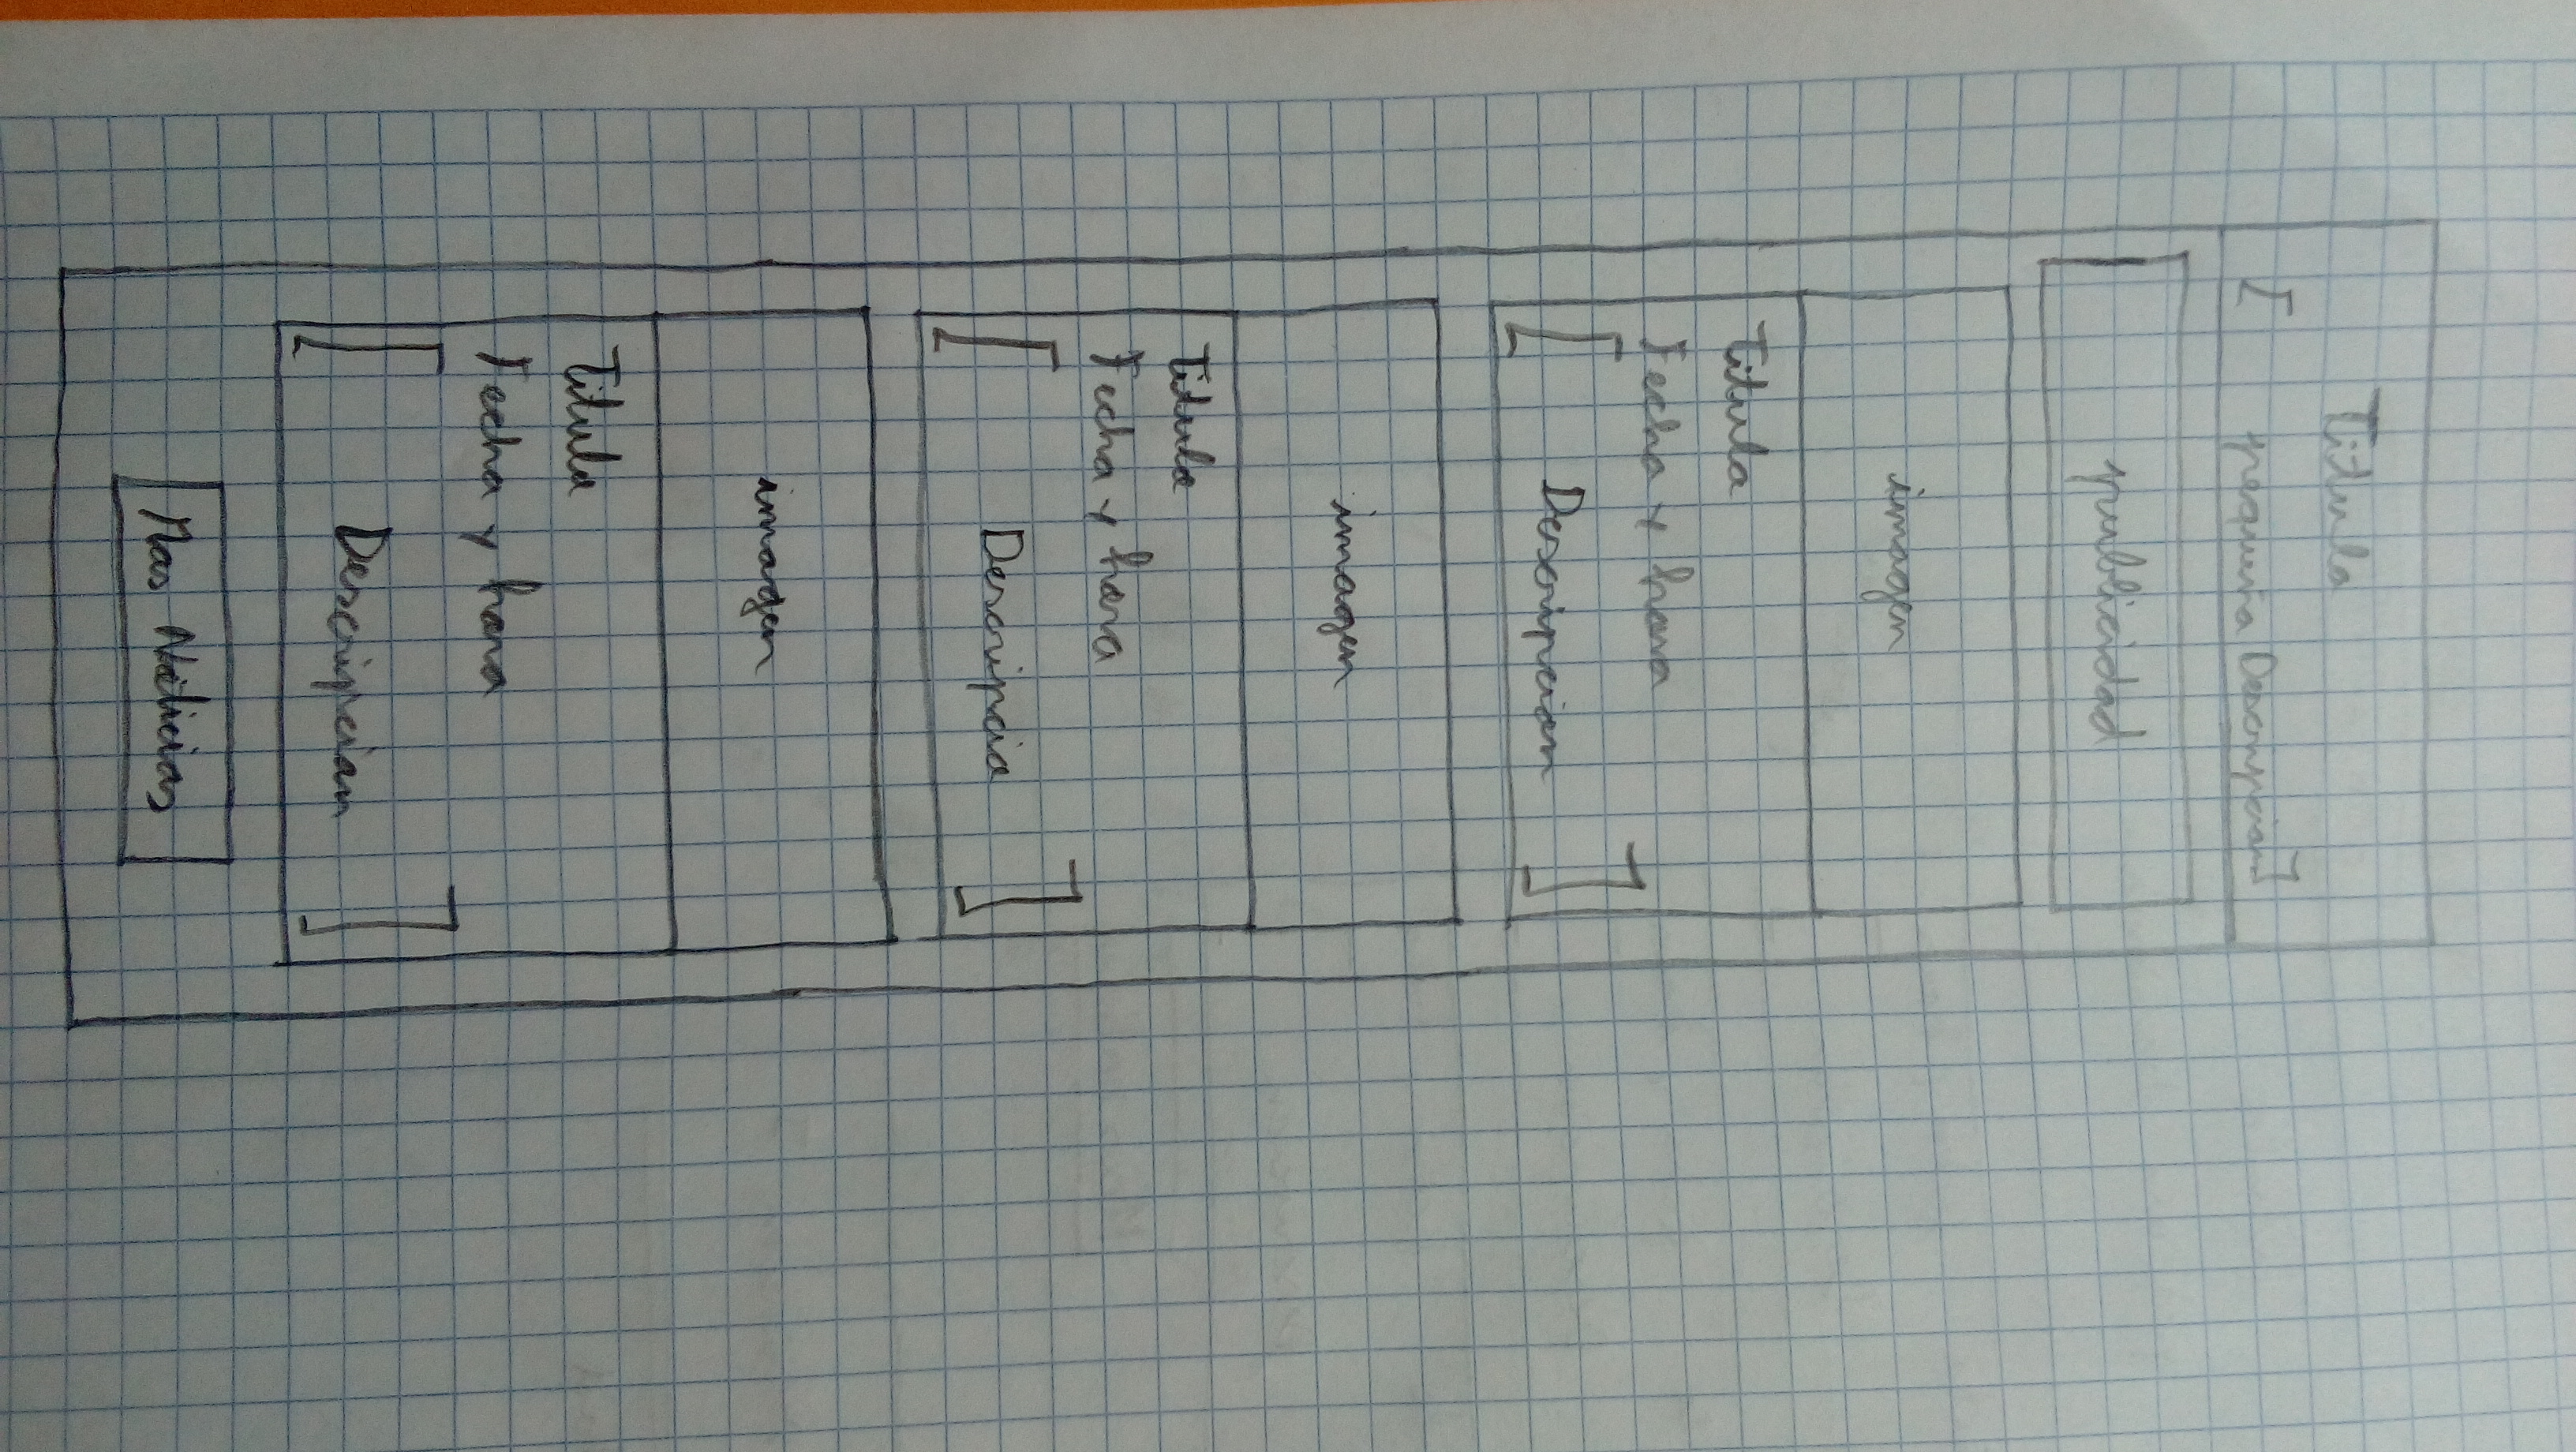 Titulo
[ pequeña Descripcion ]
publicidad
imagen
Titulo
Fecha y hora
[ Descripcion ]
imagen
Titulo
Fecha y hora
[ Descripcio ]
imagen
Titulo
Fecha y hora
[ Descripcion ]
Mas Noticias